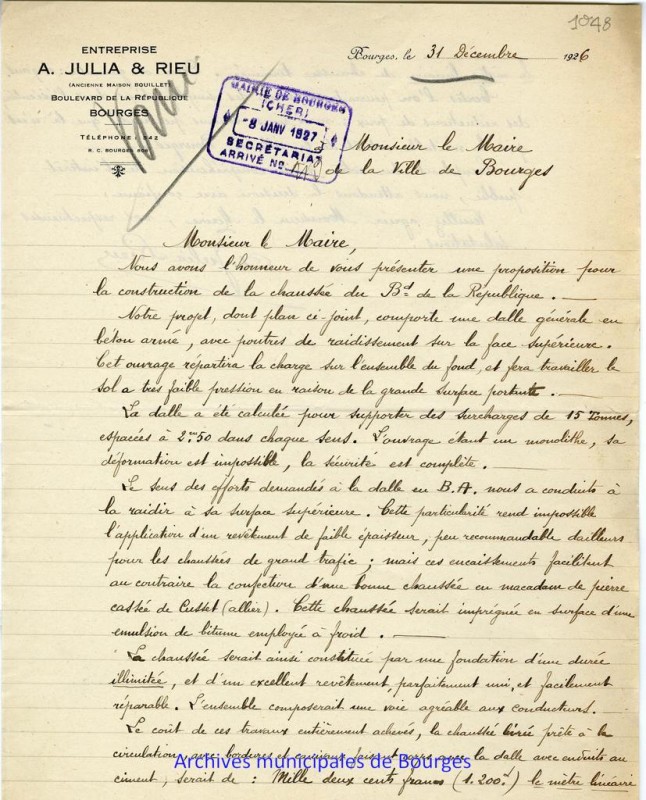 1048
ENTREPRISE
A. JULIA & RIEU
(ANCIENNE MAISON BOUILLET)
BOULEVARD DE LA RÉPUBLIQUE
BOURGES
TÉLÉPHONE : 242
R. C. BOURGES
Bourges, le 31 Décembre 1926
MAIRIE DE BOURGES
(CHER)
-8 JANV 1927
SECRÉTARIAT
ARRIVÉ No
Monsieur le Maire
de la Ville de Bourges
Monsieur le Maire,
Nous avons l'honneur de vous présenter une proposition pour
la construction de la chaussée du Bd de la République. —
Notre projet, dont plan ci-joint, comporte une dalle générale en
béton armé, avec poutres de raidissement sur la face supérieure.
Cet ouvrage répartira la charge sur l'ensemble du fond, et fera travailler le
sol a très faible pression en raison de la grande surface portante. —
La dalle a été calculée pour supporter des surcharges de 15 Tonnes,
espacées à 2m50 dans chaque sens. L'ouvrage étant un monolithe, sa
déformation est impossible, la sécurité est complète. —
Le sens des efforts demandés à la dalle en B.A. nous a conduits à
la raidir à sa surface supérieure. Cette particularité rend impossible
l'application d'un revêtement de faible épaisseur, peu recommandable dailleurs
pour les chaussées de grand trafic ; mais ces encaissements facilitent
au contraire la confection d'une bonne chaussée en macadam de pierre
cassée de Cusset (allier). Cette chaussée serait imprégnée en surface d'une
emulsion de bitume employée à froid. —
La chaussée serait ainsi constituée par une fondation d'une durée
illimitée, et d'un excellent revêtement, parfaitement uni, et facilement
réparable. L'ensemble composerait une voie agréable aux conducteurs.
Le coût de ces travaux entièrement achevés, la chaussée livrée prête à la
circulation, avec bordures et caniveaux faisant corps avec la dalle avec enduits au
ciment, serait de : Mille deux cent francs (1.200f) le mètre linéaire
Archives municipales de Bourges